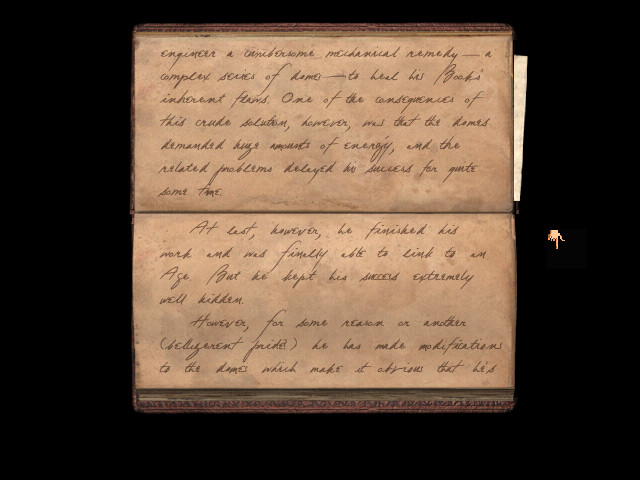 engineer a cumbersome mechanical remedy — a
complex series of domes — to heal his Book's
inherent flaws. One of the consequences of
this crude solution, however, was that the domes
demanded huge amounts of energy, and the
related problems delayed his success for quite
some time.
At last, however, he finished his
work and was finally able to link to an
Age. But he kept his success extremely
well hidden.
However, for some reason or another
(belligerent pride?) he has made modifications
to the domes which make it obvious that he's